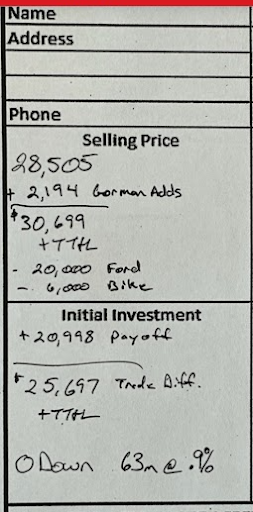 Name
Address
Phone
Selling Price
28,505
+ 2,194 Gorman Adds
$30,699
+TT&L
- 20,000 Ford
- 6,000 Bike
Initial Investment
+20,998 Payoff
$25,697 Trade Diff.
+TT&L
0 Down 63m @ .9%